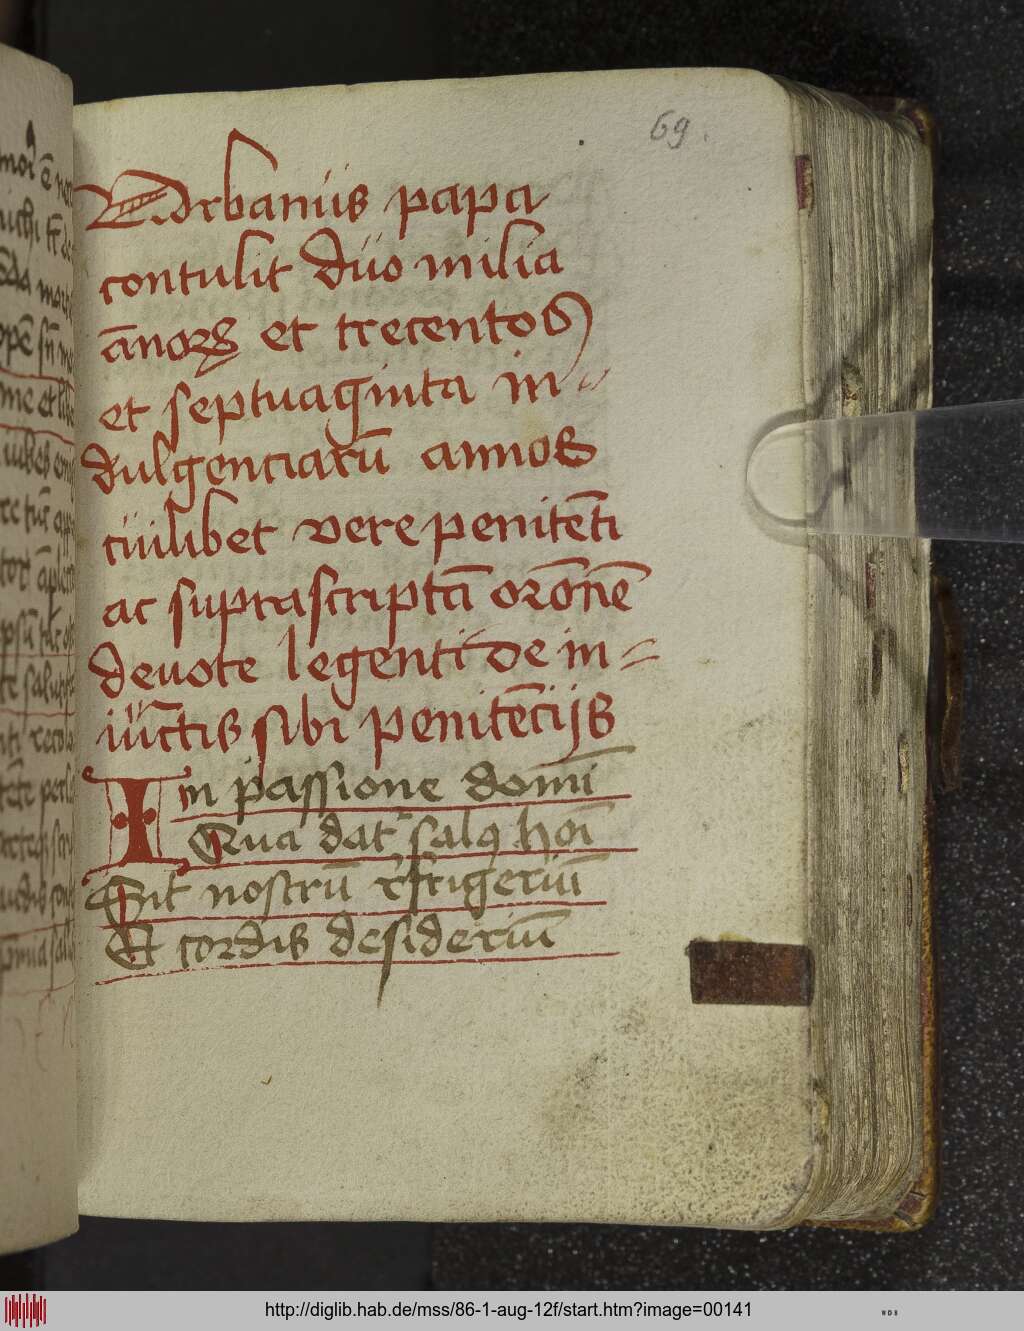 69.
Vrbanus papa
contulit duo milia
ānoꝝ et trecentos
et septuaginta in-
dulgenciarū annos
cuilibet vere penitēti
ac suprascriptā orōnē
deuote legenti de in=
iūctis sibi penitēciis
In passione domī
Qua dat᷑ salꝰ hoī
Sit nostrū rͤfrigeriū
Et cordis desideriū
http://diglib.hab.de/mss/86-1-aug-12f/start.htm?image=00141